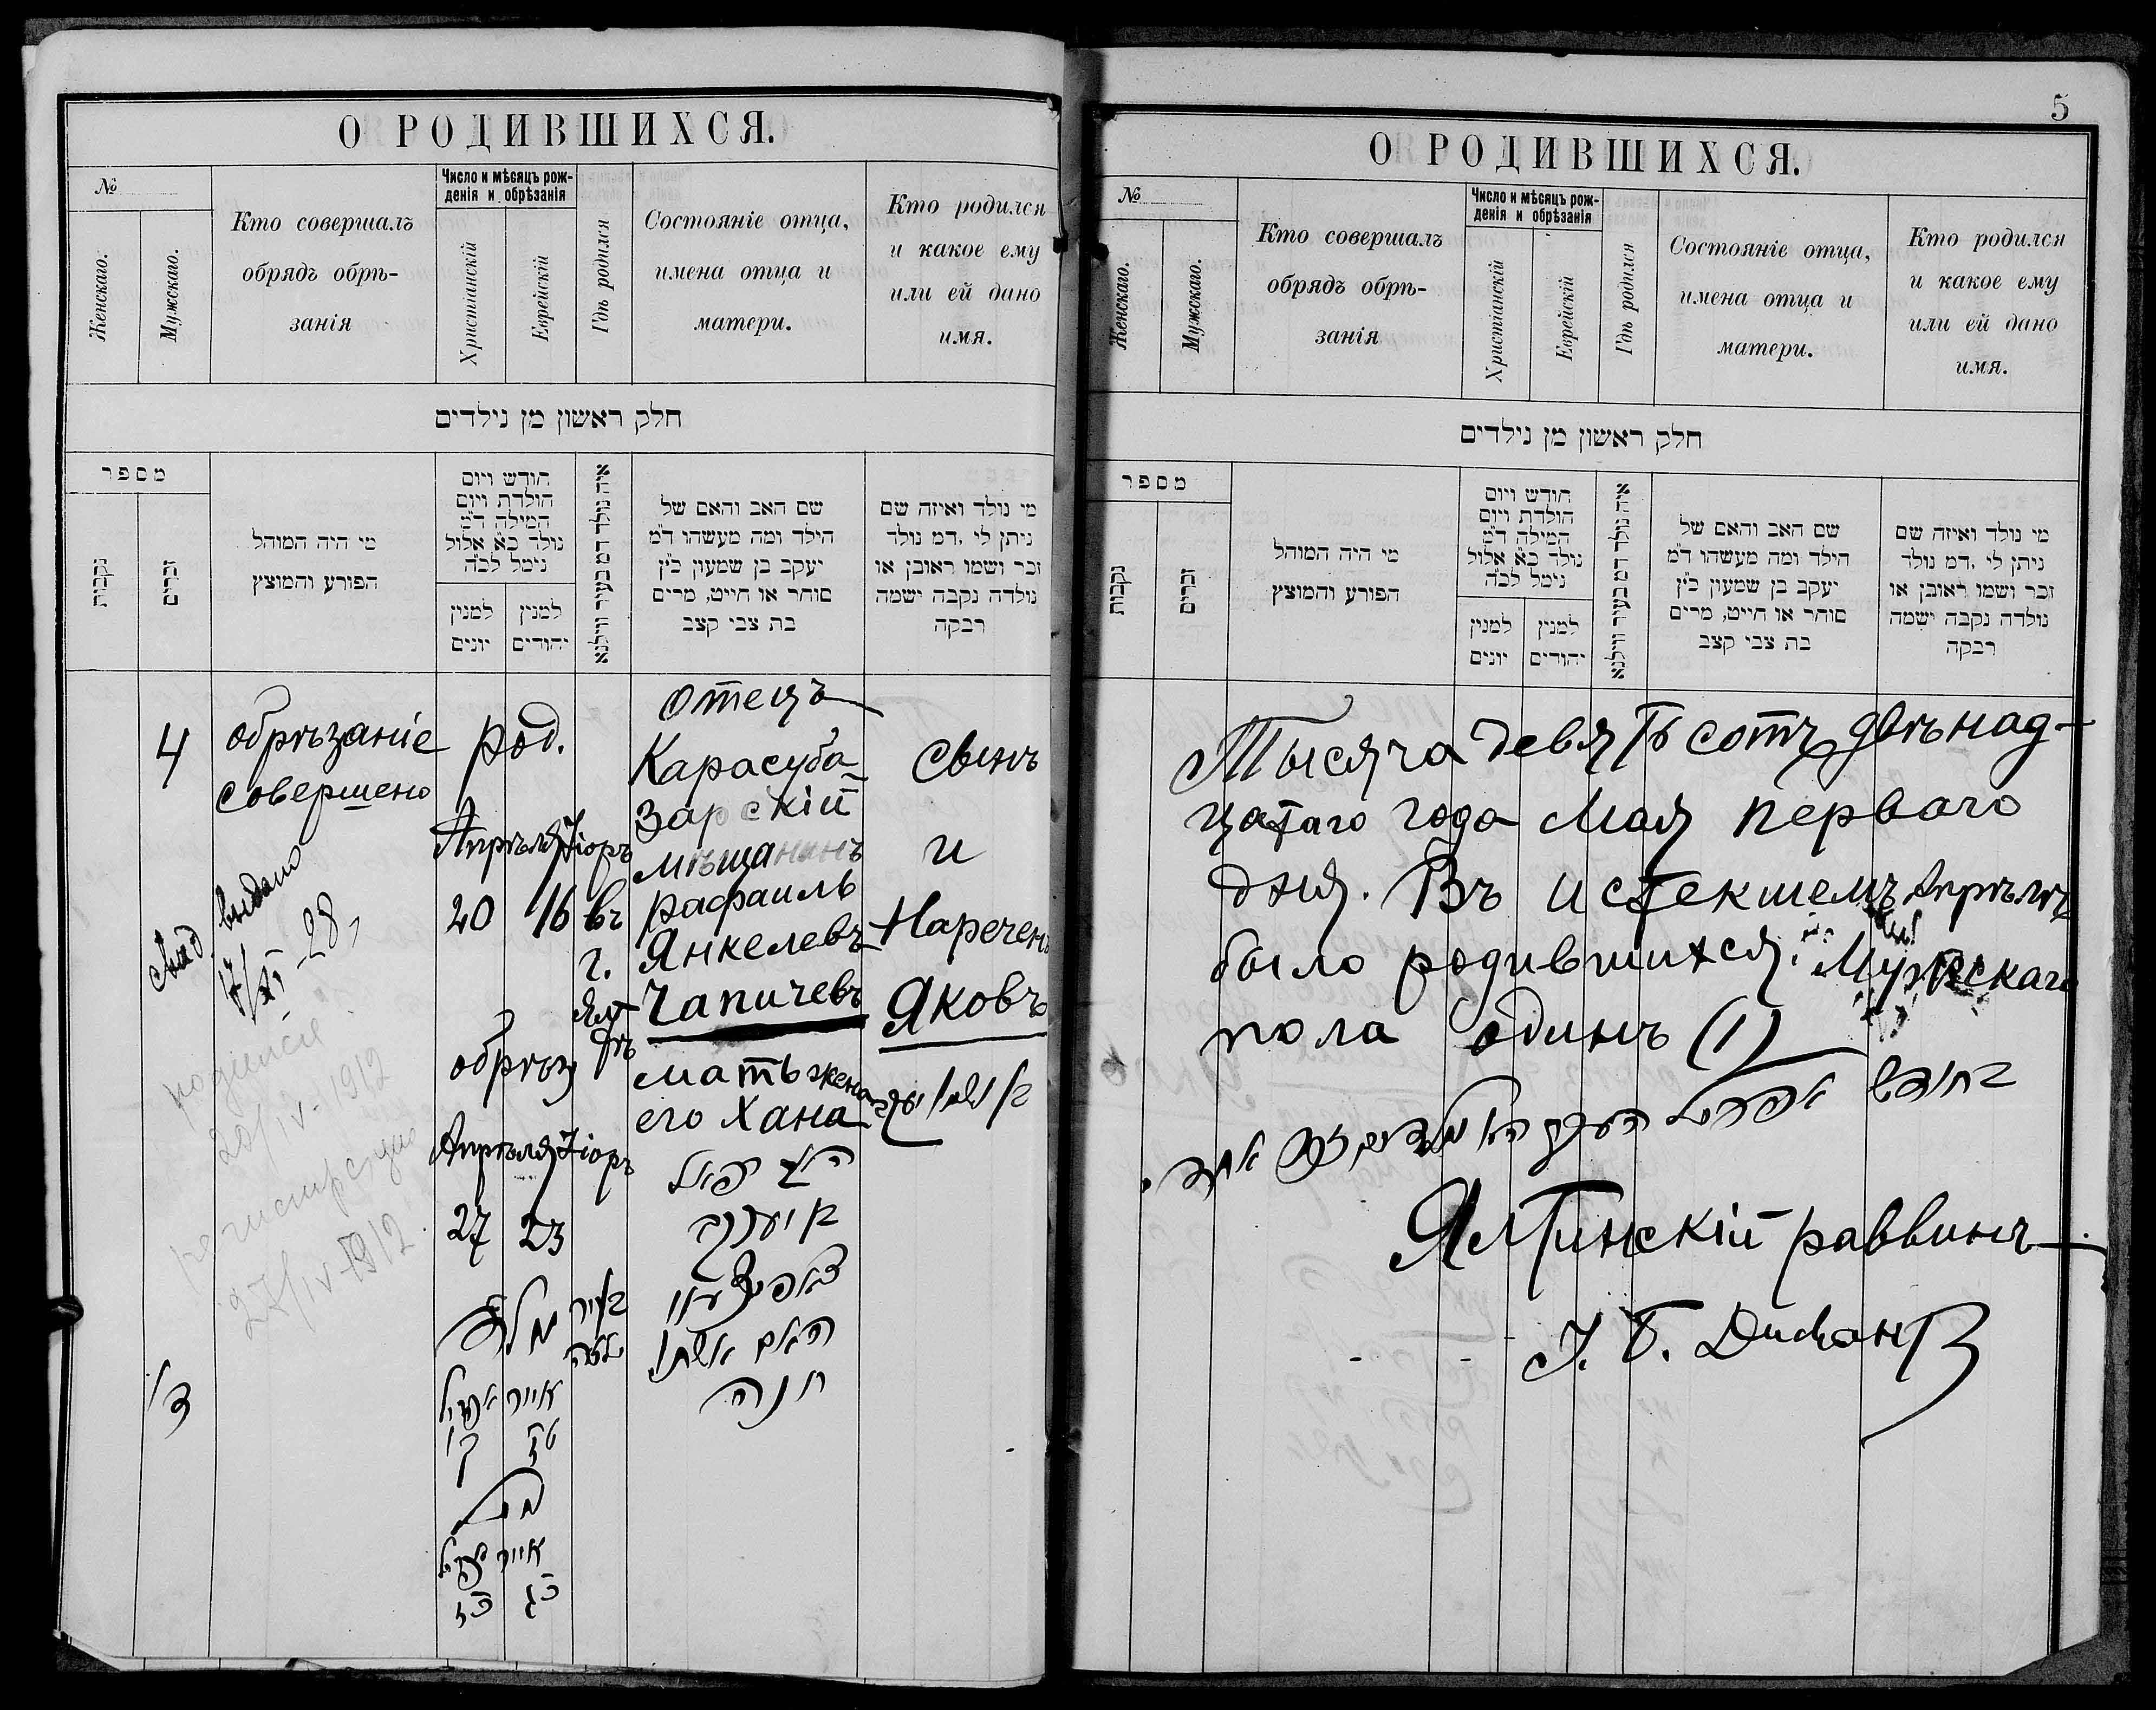 О РОДИВШИХСЯ.
№
Женскаго.
Мужскаго.
Кто совершалъ
обрядъ обрѣ-
занія
Число и мѣсяцъ рож-
денія и обрѣзанія
Христіанскій
Еврейскій
Гдѣ родился
Состояніе отца,
имена отца и
матери.
Кто родился
и какое ему
или ей дано
имя.
חלק ראשון מן נילדים
מספר
נקבות
זכרים
מי היה המוהל
הפורע והמוצץ
חודש ויום
הולדת ויום
המילה ד״מ
נולד כ״א אלול
נימל לכ״ה
למנין
יונים
למנין
יהודים
איה נולד דמ בעיר ווילנא
שם האב והאם של
הילד ומה מעשהו ד״מ
יעקב בן שמעון כ״ץ
סוחר או חייט, מרים
בת צבי קצב
מי נולד ואיזה שם
ניתן לי, דמ נולד
זכר ושמו ראובן או
נולדה נקבה ישמה
רבקה
4
обрѣзаніе
совершено
род.
Апрѣля Іоръ
20 16
въ
г.
Ял-
тѣ
обрѣз
Апрѣля Іоръ
27 23
отецъ
Карасуба-
зарскій
мѣщанинъ
Рафаилъ
Янкелевъ
Чапичевъ
мать жена
его Хана
сынъ
и
Нареченъ
Яковъ
свид. выдано
17/XI-28
родился
20/IV-1912
регистрацию
27/IV-1912
יעקב
ד׳
בעיר
יאלטה
נולד
אייר אפריל
ט״ז
כ׳
נימול
אייר אפריל
כ״ג כ״ז
האב רפאל
ב׳ יעקב
האם אשתו
חנה
5
О РОДИВШИХСЯ.
№
Женскаго.
Мужскаго.
Кто совершалъ
обрядъ обрѣ-
занія
Число и мѣсяцъ рож-
денія и обрѣзанія
Христіанскій
Еврейскій
Гдѣ родился
Состояніе отца,
имена отца и
матери.
Кто родился
и какое ему
или ей дано
имя.
חלק ראשון מן נילדים
מספר
נקבות
זכרים
מי היה המוהל
הפורע והמוצץ
חודש ויום
הולדת ויום
המילה ד״מ
נולד כ״א אלול
נימל לכ״ה
למנין
יונים
למנין
יהודים
איה נולד דמ בעיר ווילנא
שם האב והאם של
הילד ומה מעשהו ד״מ
יעקב בן שמעון כ״ץ
סוחר או חייט, מרים
בת צבי קצב
מי נולד ואיזה שם
ניתן לי, דמ נולד
זכר ושמו ראובן או
נולדה נקבה ישמה
רבקה
Тысяча девятьсотъ двѣнад-
цатаго года Мая перваго
дня. Въ истекшемъ Апрѣлѣ
было родившихся: Мужскаго
пола одинъ (1)
בחודש אפריל
Ялтинскій раввинъ